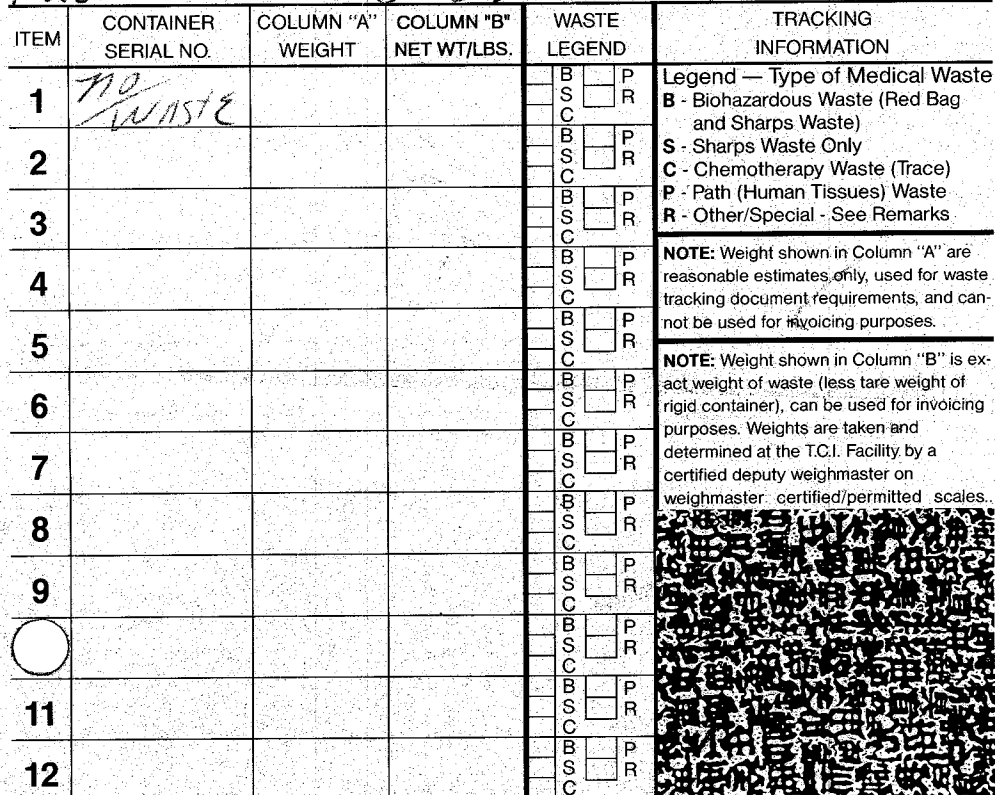 ITEM
CONTAINER
SERIAL NO.
COLUMN "A"
WEIGHT
COLUMN "B"
NET WT/LBS.
WASTE
LEGEND
TRACKING
INFORMATION
1
no
WASTE
B P
S R
C
2
B P
S R
C
3
B P
S R
C
4
B P
S R
C
5
B P
S R
C
6
B P
S R
C
7
B P
S R
C
8
B P
S R
C
9
B P
S R
C
B P
S R
C
11
B P
S R
C
12
B P
S R
C
Legend — Type of Medical Waste
B - Biohazardous Waste (Red Bag
and Sharps Waste)
S - Sharps Waste Only
C - Chemotherapy Waste (Trace)
P - Path (Human Tissues) Waste
R - Other/Special - See Remarks
NOTE: Weight shown in Column "A" are
reasonable estimates only, used for waste
tracking document requirements, and can-
not be used for invoicing purposes.
NOTE: Weight shown in Column "B" is ex-
act weight of waste (less tare weight of
rigid container), can be used for invoicing
purposes. Weights are taken and
determined at the T.C.I. Facility by a
certified deputy weighmaster on
weighmaster certified/permitted scales.